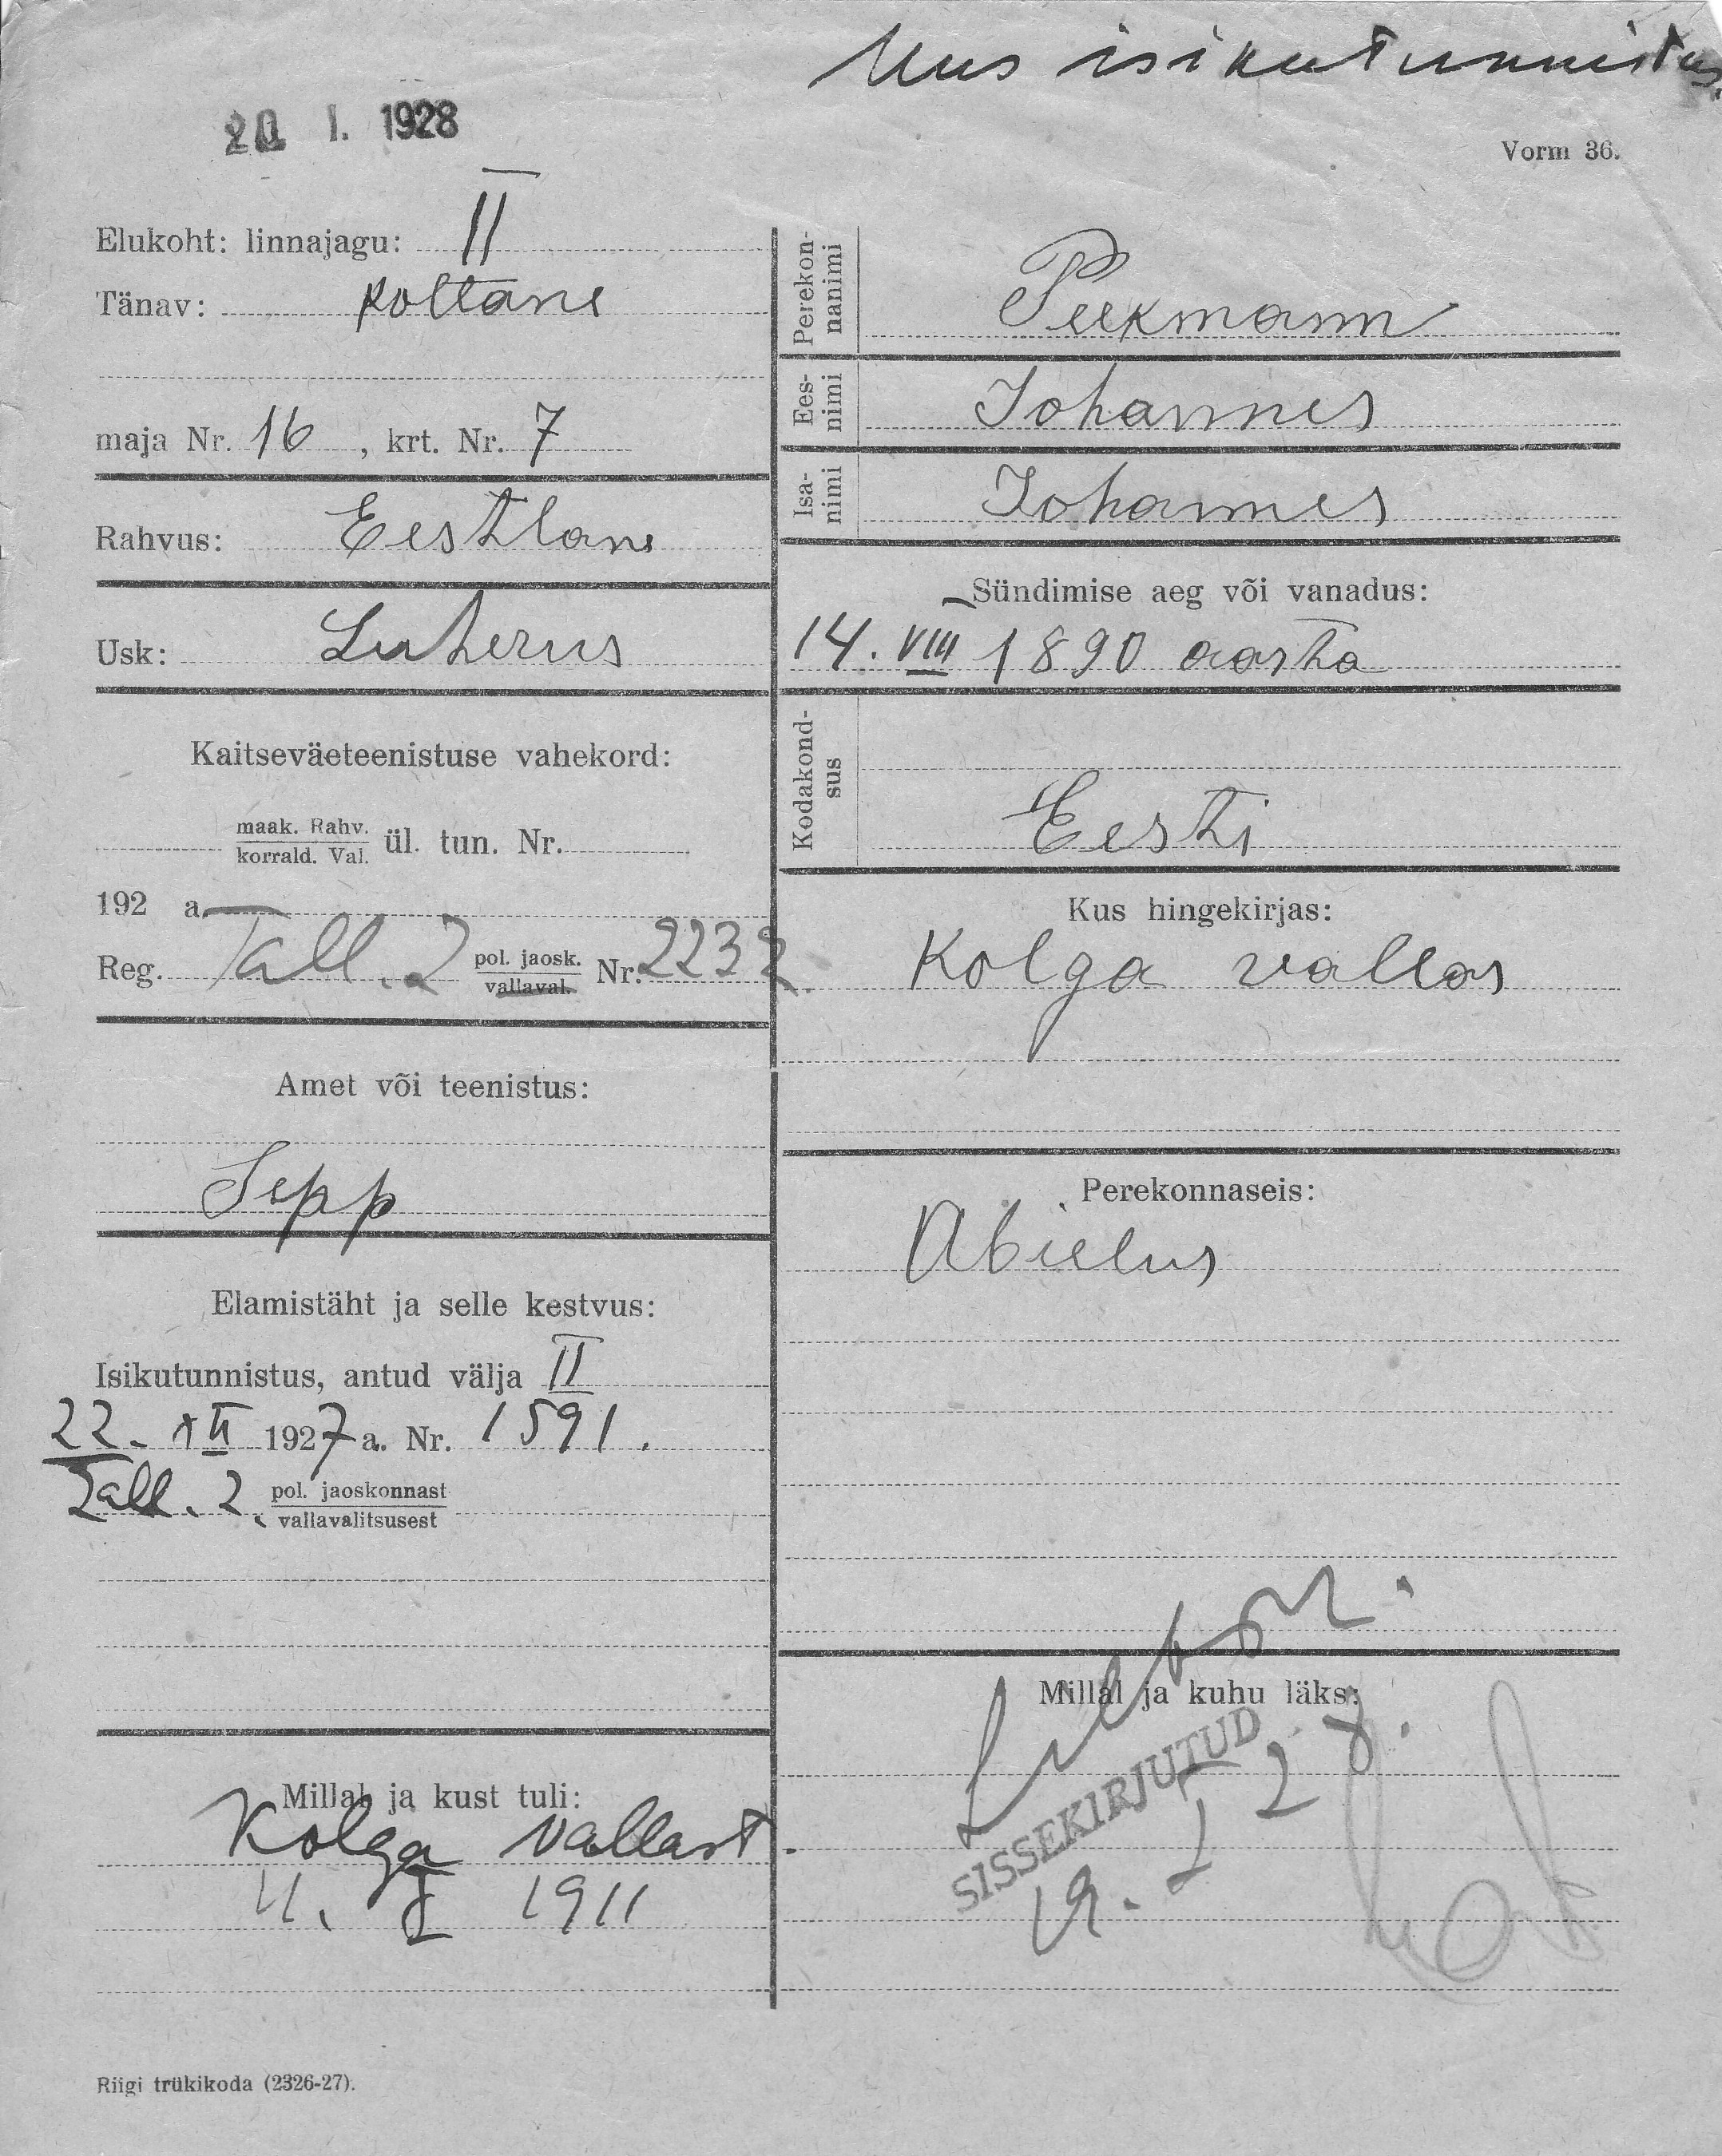 Uus isikutunnistus.
20 I. 1928
Vorm 36.
Elukoht: linnajagu: II
Tänav: Koltane
maja Nr. 16, krt. Nr. 7
Rahvus: Eestlane
Usk: Luterus
Kaitseväeteenistuse vahekord:
maak. Rahv.
korrald. Val. ül. tun. Nr.
192 a.
Reg. Tall. 2 pol. jaosk. Nr. 2232
vallaval.
Amet või teenistus:
Sepp
Elamistäht ja selle kestvus:
Isikutunnistus, antud välja II
22. XII 1927 a. Nr. 1591.
Tall. 2. pol. jaoskonnast
vallavalitsusest
Millal ja kust tuli:
Kolga vallast.
11. I 1911
Riigi trükikoda (2326-27).
Perekonnanimi
Peekmann
Eesnimi
Johannes
Isanimi
Johannes
Sündimise aeg või vanadus:
14. VIII 1890 aasta
Kodakondsus
Eesti
Kus hingekirjas:
Kolga vallas
Perekonnaseis:
Abielus
Millal ja kuhu läks:
SISSEKIRJUTUD
19. I 28.